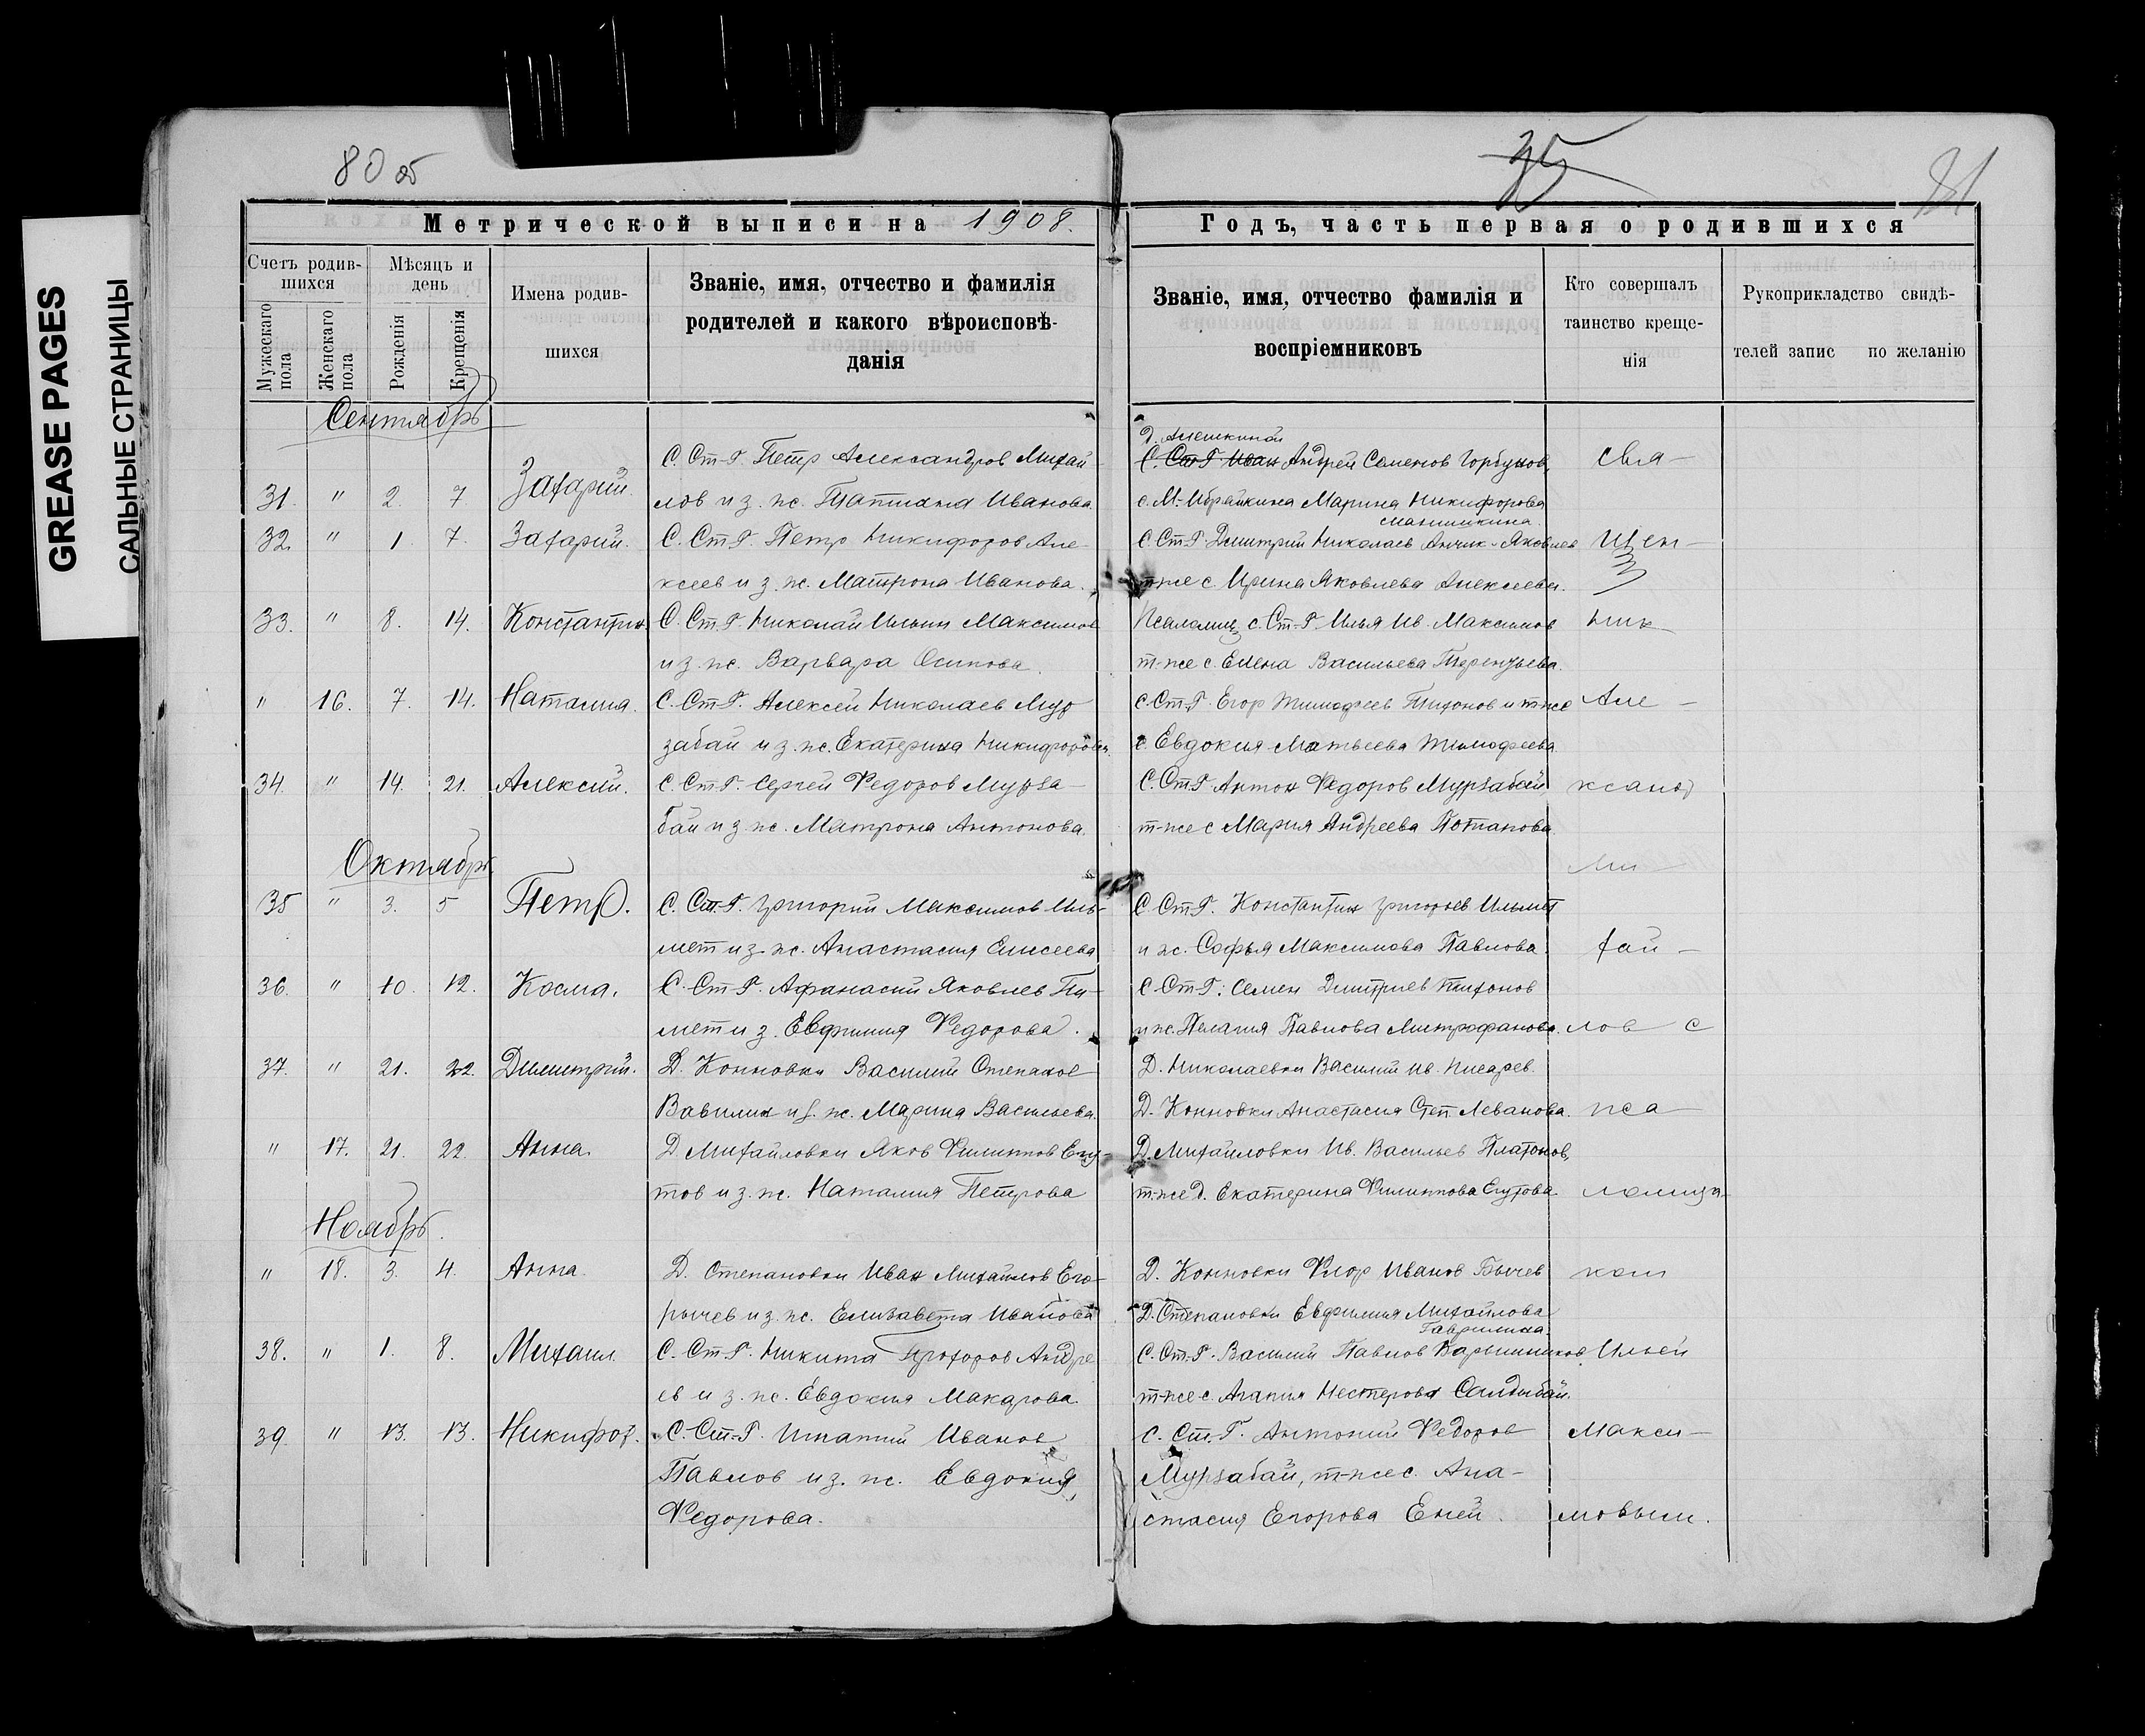 GREASE PAGES
САЛЬНЫЕ СТРАНИЦЫ
80 об
35
81
Метрической выписи на 1908.
Годъ, часть первая о родившихся
Счетъ родив-
шихся
Мѣсяцъ и
день
Мужескаго
пола
Женскаго
пола
Рожденія
Крещенія
Имена родив-
шихся
Званіе, имя, отчество и фамилія
родителей и какого вѣроисповѣ-
данія
Званіе, имя, отчество фамилія и
воспріемниковъ
Кто совершалъ
таинство креще-
нія
Рукоприкладство свидѣ-
телей запис по желанію
Сентябрь
Д. Алешкиной
С. Ст-Г. Петр Александров Михай- С. Ст-Г. Иван Андрей Семенов Горбунов, свя-
31. " 2. 7. Захарий. лов и з. ж. Татиана Иванова. с. М.-Ибрайкина Марина Никифорова
Манишкина.
32. " 1. 7. Захарий. С. Ст.Г. Петр Никифоров Але- С. Ст.Г. Дмитрий Николаев Яковлев щен-
ксеев и з. ж. Матрона Иванова. т-же с. Ирина Яковлева Алексеева.
33. " 8. 14. Константин. С. Ст.Г. Николай Ильин Максимов Псаломщ. с. Ст-Г. Илья Ив. Максимов ник
и з. ж. Варвара Осипова. т-же с. Елена Васильева Терентьева.
" 16. 7. 14. Наталия. С. Ст.Г. Алексей Николаев Мур С. Ст.Г. Егор Тимофеев Тихонов и т-же Але-
забай и з. ж. Екатерина Никифорова. с. Евдокия Матвеева Тимофеева
34. " 14. 21. Алексий. С. Ст.Г. Сергей Федоров Мурза- С. Ст.Г. Антон Федоров Мурзабай ксанд
бай и з. ж. Матрона Антонова. т-же с Мария Андреева Потапова.
Октябрь. Ми-
35 " 3. 5 Петр. С. Ст.Г. Григорий Максимов Иль- С. Ст.Г. Константин Григорьев Ильмет
мет и з. ж. Анастасия Елисеева и ж. Софья Максимова Павлова. хай-
36. " 10. 12. Косма. С. Ст.Г. Афанасий Яковлев Пи- С. Ст.Г. Семен Дмитриев Тихонов
мет и з. Евфимия Федорова. и ж. Пелагия Павлова Митрофанова. лов с
37. " 21. 22. Димитрий. Д. Конновки Василий Степанов Д. Николаевки Василий Ив. Писарев.
Вавилин и з. ж. Марина Васильева. Д. Конновки Анастасия Степ. Леванова. пса-
" 17. 21. 22. Анна. Д Михайловки Яков Филиппов Егу- Д. Михайловки Ив. Васильев Платонов,
тов и з. ж. Наталия Петрова т-же д. Екатерина Филиппова Егутова. ломщи-
Ноябрь.
" 18. 3. 4. Анна. Д. Степановки Иван Михайлов Его- Д. Конновки Флор Иванов Бычев ком
рычев и з. ж. Елизавета Иванова Д. Степановки Евфимия Михайлова
Гаврилина.
38. " 1. 8. Михаил. С. Ст.Г. Никита Прохоров Андре С. Ст.-Г. Василий Павлов Барышников, Ильей
ев и з. ж. Евдокия Макарова. т-же с. Агапия Нестерова Салдыбай.
39. " 13. 13. Никифор. С. Ст.-Г. Ипатий Иванов С. Ст.-Г. Антоний Федоров Макси-
Павлов и з. ж. Евдокия Мурзабай, т-же с. Ана-
Федорова. стасия Егорова Еней. мовым.